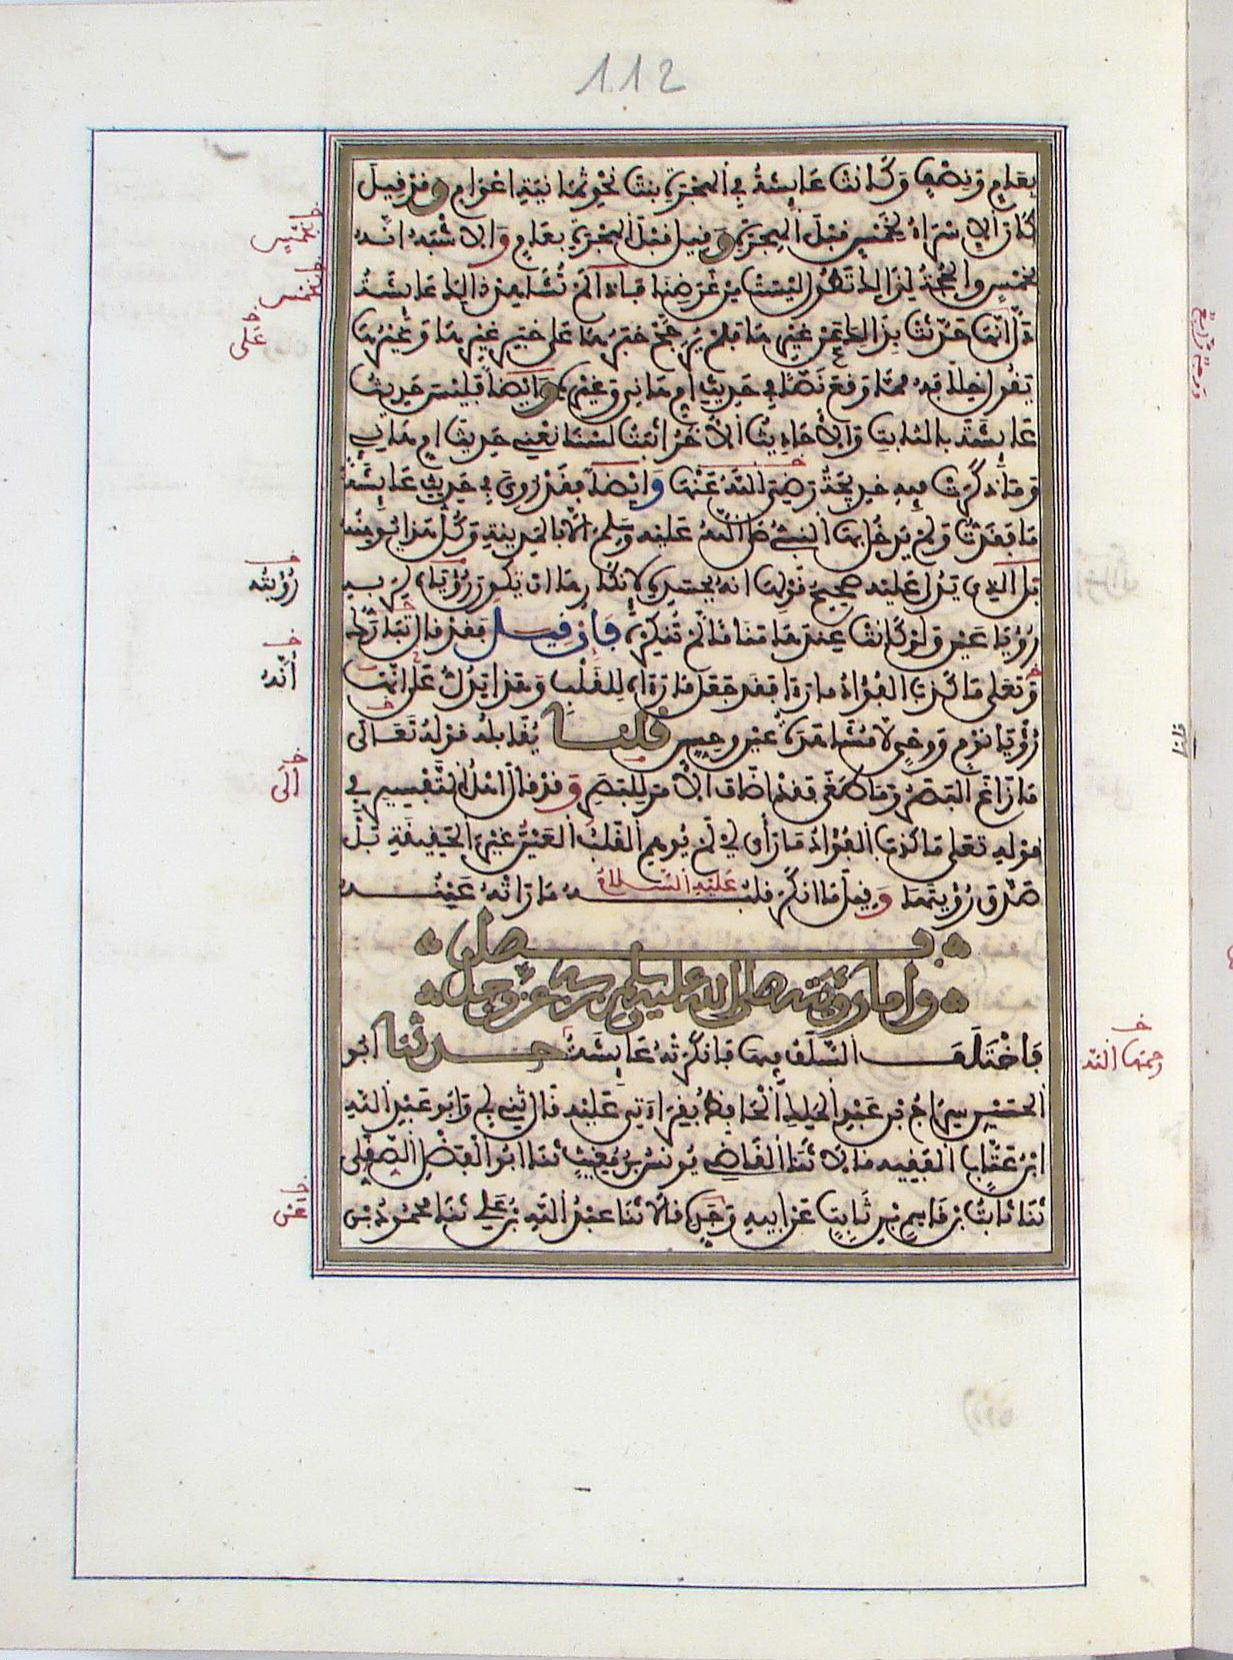 112
بعام ونصف وكانت عايشة في الهجرة بنت نحو ثمانية اعوام وقد قيل
كان الاسراء لخمس قبل الهجرة وقيل قبل الهجرة بعام والاشبه انه
لخمس والحجة لذلك تطول ليست من غرضنا فاذا لم تشاهد ذلك عايشة
دل انها حدثت بذلك عن غيرها فلم يرجح خبرها على خبر غيرها وغيرها
يقول خلافه مما وقع نصا في حديث ام هانئ وغيره وايضا فليس حديث
عايشة بالثابت والاحاديث الاخر اثبت لسنا نعني حديث ام هانئ
وما ذكرت فيه خديجة رضي الله عنها وايضا فقد روي في حديث عايشة
ما فقدت ولم يدخل بها النبي صلى الله عليه وسلم الا بالمدينة وكل هذا يوهنه
بل الذي يدل عليه صحيح قولها انه بجسده لانكارها ان تكون رؤياه لربه
رؤيا عين ولو كانت عندها مناما لم تنكره فان قيل فقد قال تبارك
وتعلى ما كذب الفؤاد ما رءا فقد جعل ما رءاه للقلب وهذا يدل على انها
رؤيا نوم ووحي لا مشاهدة عين وحس قلنا يقابله قوله تعالى
ما زاغ البصر وما طغى فقد اضاف الامر للبصر وقد قال اهل التفسير في
قوله تعلى ما كذب الفؤاد ما رأى اي لم يوهم القلب العين غير الحقيقة بل
صدق رؤيتها وقيل ما انكر قلبه عليه السلام ما راته عينه
فصل
واما رؤيته صلى الله عليه وسلم لربه عز وجل
فاختلف السلف فيها فانكرته عايشة حدثنا ابو
الحسين سراج بن عبد الملك الحافظ بقراءتي عليه قال ثني ابي وابو عبد الله
ابن عتاب الفقيه قالا ثنا القاضي يونس بن مغيث ثنا ابو الفضل الصقلي
ثنا ثابت بن قاسم بن ثابت عن ابيه وجده قالا ثنا عبد الله بن علي ثنا محمود بن
رؤيته
انه
الى
رحمها الله